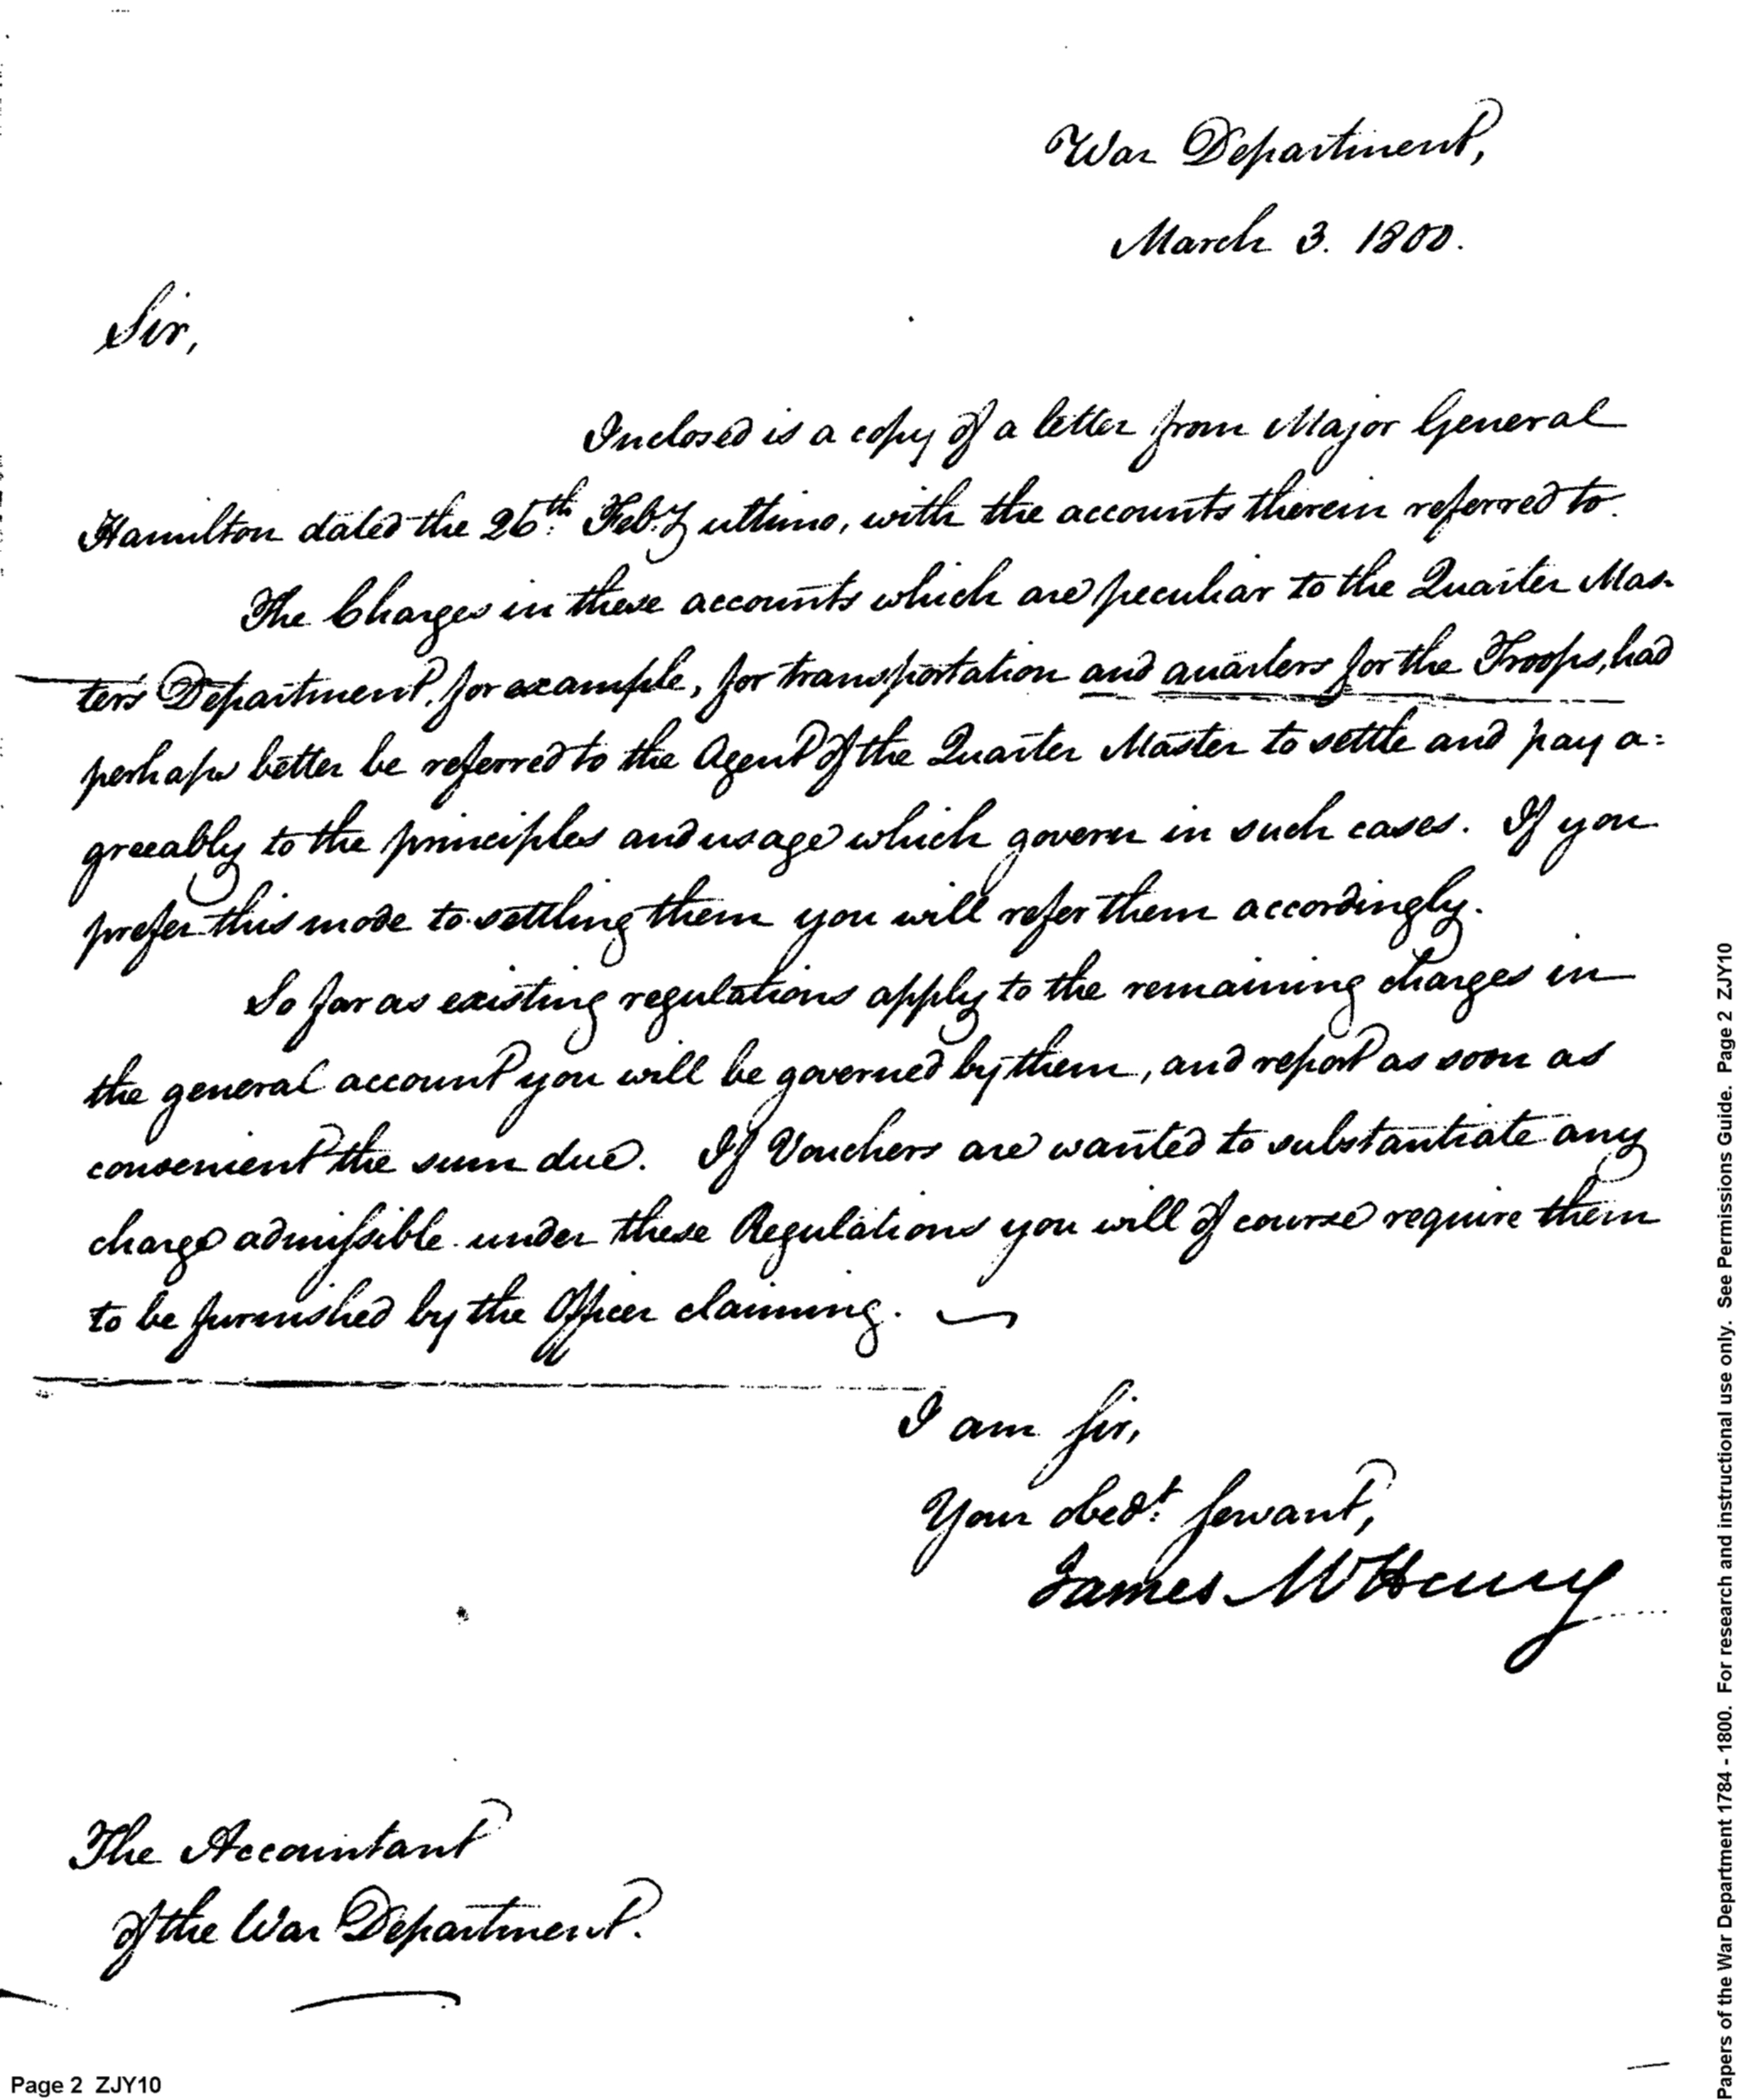 War Department,
March 3. 1800.
Sir,
Inclosed is a copy of a letter from Major General
Hamilton dated the 26th. Feb.y ultimo, with the accounts therein referred to.
The Charges in these accounts which are peculiar to the Quarter Mas-
ters Department, for example, for transportation and quarters for the Troops, had
perhaps better be referred to the Agent of the Quarter Master to settle and pay a=
greeably to the principles and usage which govern in such cases. If you
prefer this mode to settling them you will refer them accordingly.
So far as existing regulations apply to the remaining charges in
the general account you will be governed by them, and report as soon as
convenient the sum due. If Vouchers are wanted to substantiate any
charge admissible under these Regulations you will of course require them
to be furnished by the Officer claiming.
I am Sir,
Your obedt: Servant,
James McHenry
The Accountant
of the War Department.
Page 2 ZJY10
Papers of the War Department 1784 - 1800. For research and instructional use only. See Permissions Guide. Page 2 ZJY10